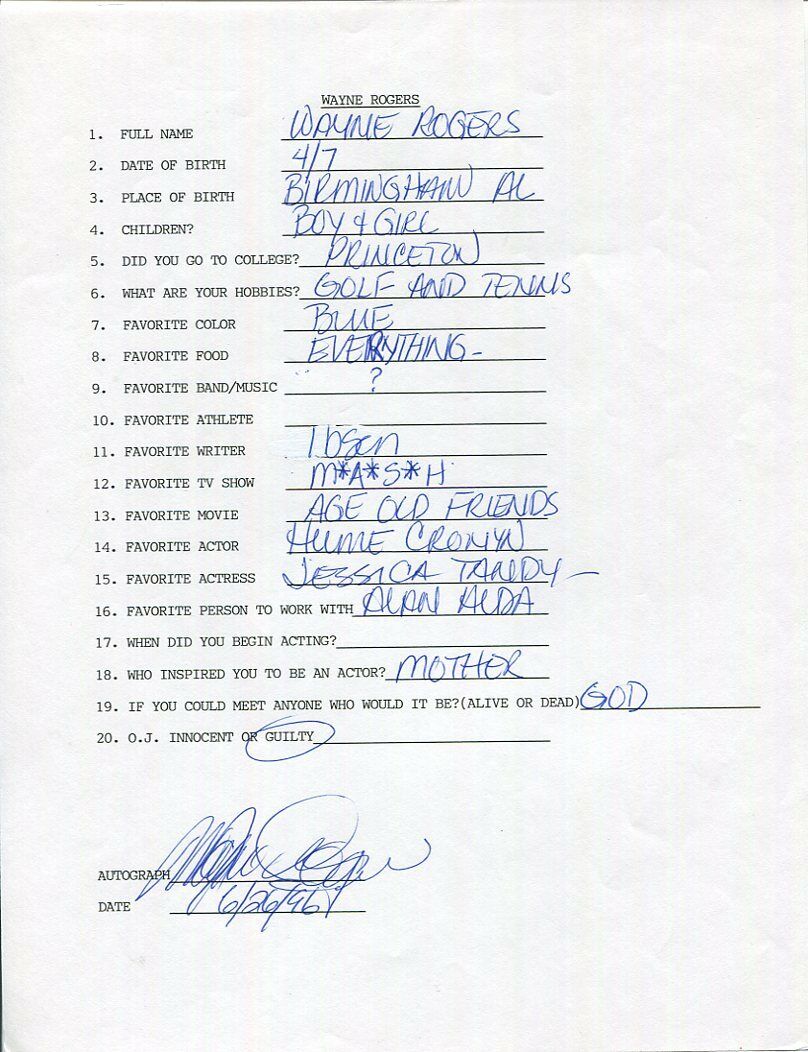 WAYNE ROGERS
1. FULL NAME WAYNE ROGERS
2. DATE OF BIRTH 4/7
3. PLACE OF BIRTH BIRMINGHAM AL
4. CHILDREN? BOY & GIRL
5. DID YOU GO TO COLLEGE? PRINCETON
6. WHAT ARE YOUR HOBBIES? GOLF AND TENNIS
7. FAVORITE COLOR BLUE
8. FAVORITE FOOD EVERYTHING-
9. FAVORITE BAND/MUSIC ?
10. FAVORITE ATHLETE
11. FAVORITE WRITER Ibsen
12. FAVORITE TV SHOW M*A*S*H
13. FAVORITE MOVIE AGE OLD FRIENDS
14. FAVORITE ACTOR HUME CRONYN
15. FAVORITE ACTRESS JESSICA TANDY-
16. FAVORITE PERSON TO WORK WITH ALAN ALDA
17. WHEN DID YOU BEGIN ACTING?
18. WHO INSPIRED YOU TO BE AN ACTOR? MOTHER
19. IF YOU COULD MEET ANYONE WHO WOULD IT BE?(ALIVE OR DEAD) GOD
20. O.J. INNOCENT OR GUILTY
AUTOGRAPH Wayne Rogers
DATE 6/26/96